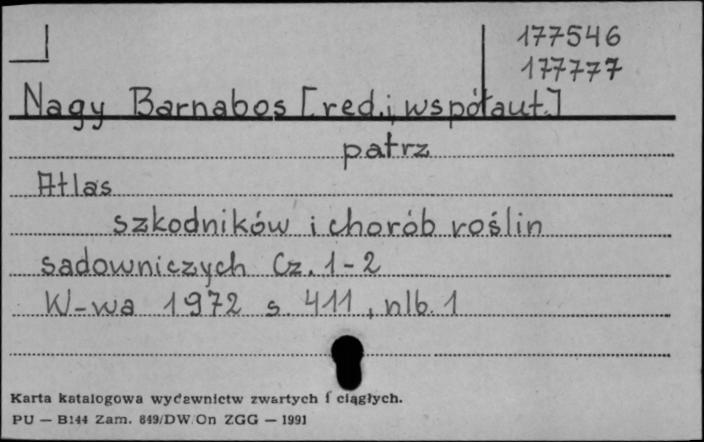 177546
177777
Nagy Barnabos [red. i współaut.]
patrz
Atlas
szkodników i chorób roślin
sadowniczych Cz. 1-2
W-wa 1972 s. 411, nlb. 1
Karta katalogowa wydawnictw zwartych i ciągłych.
PU — B144 Zam. 849/DW/On ZGG — 1991